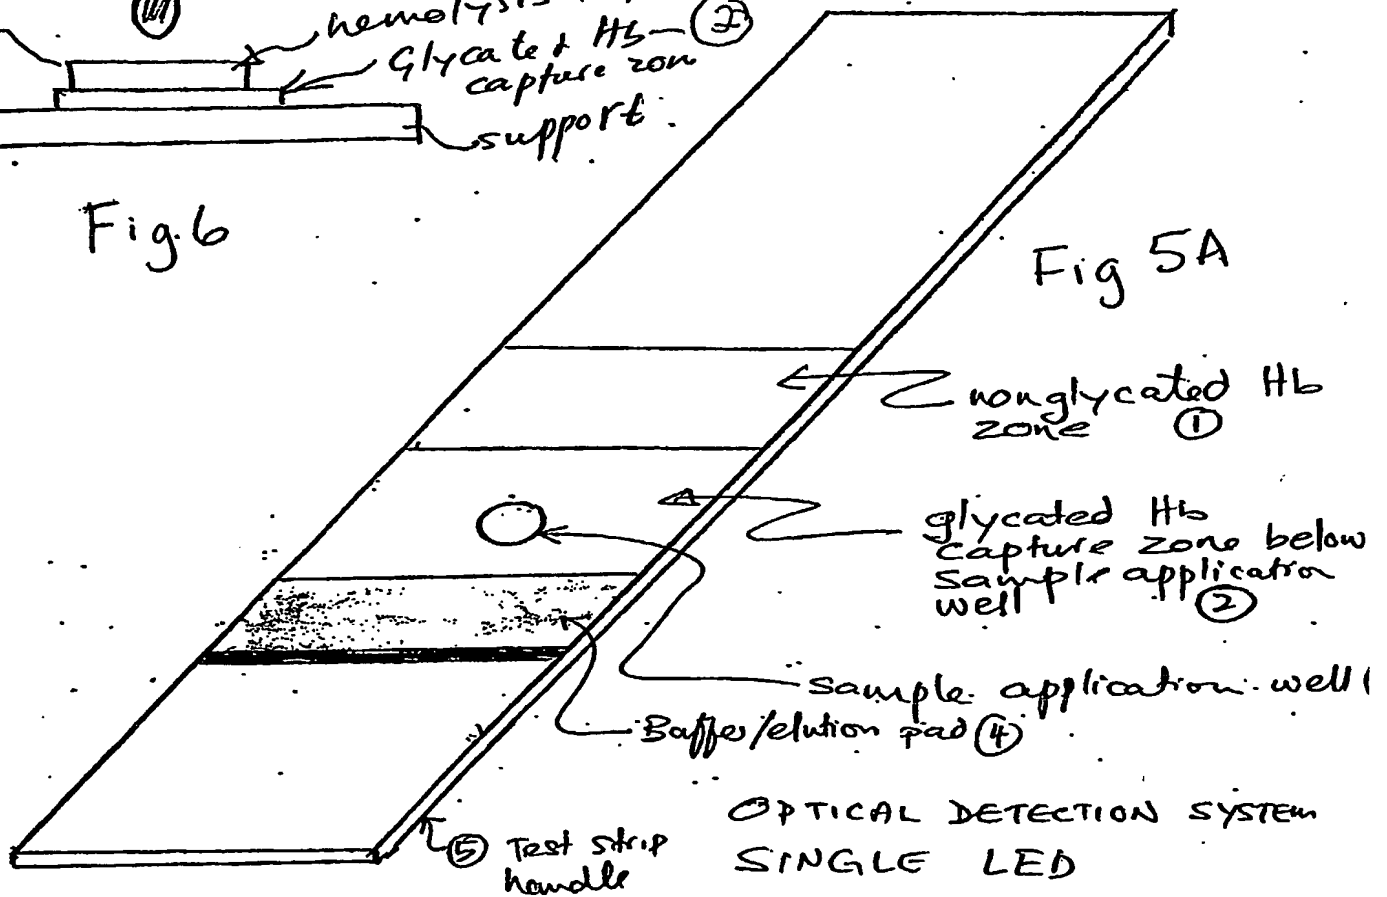 hemolysis
Glycated Hb (2)
capture zon
support
Fig.6
Fig 5A
nonglycated Hb
zone (1)
glycated Hb
capture zone below
sample application
well (2)
sample application well
Buffer/elution pad (4)
(5) Test strip
handle
OPTICAL DETECTION SYSTEM
SINGLE LED